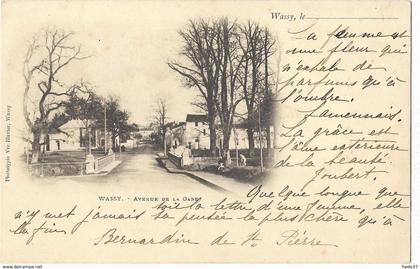 Wassy, le
La femme est
une fleur qui
n'exhale de
parfums qu'à
l'ombre.
Lamennais.
La grâce est
l'âme extérieure
de la beauté.
Joubert.
Phototypie Vve Histar, Wassy
WASSY. - AVENUE DE LA GARE
Quelque longue que
soit la lettre d'une femme, elle
n'y met jamais sa pensée la plus chère qu'à
la fin
Bernardin de St Pierre